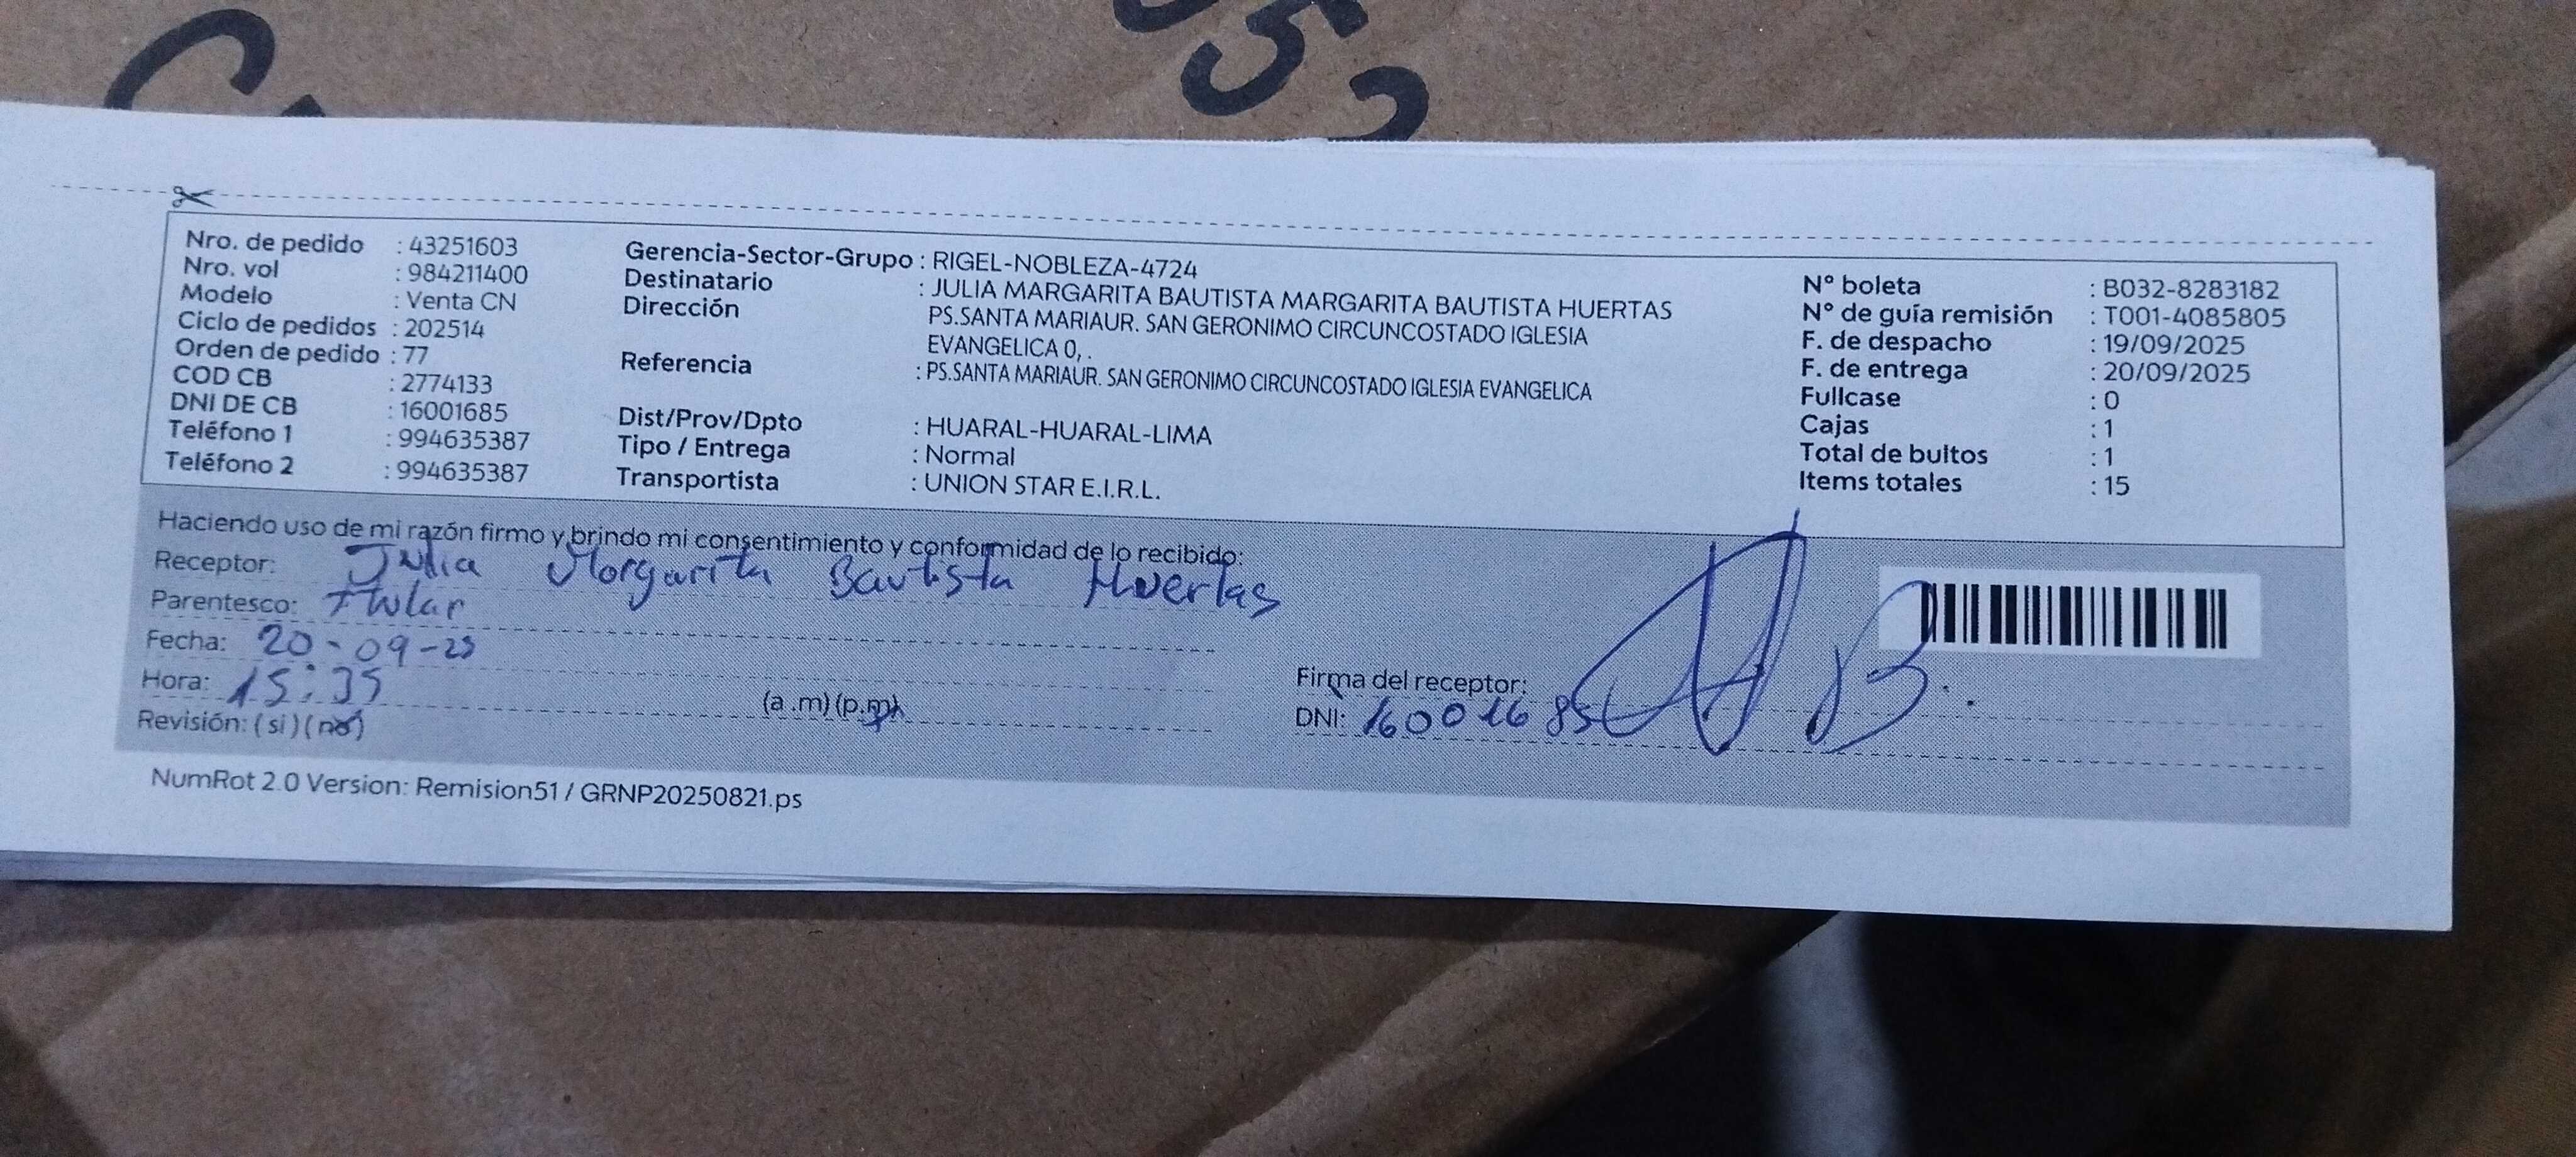 Nro. de pedido : 43251603
Nro. vol : 984211400
Modelo : Venta CN
Ciclo de pedidos : 202514
Orden de pedido : 77
COD CB : 2774133
DNI DE CB : 16001685
Teléfono 1 : 994635387
Teléfono 2 : 994635387
Gerencia-Sector-Grupo : RIGEL-NOBLEZA-4724
Destinatario : JULIA MARGARITA BAUTISTA MARGARITA BAUTISTA HUERTAS
Dirección PS.SANTA MARIAUR. SAN GERONIMO CIRCUNCOSTADO IGLESIA
EVANGELICA 0, .
Referencia : PS.SANTA MARIAUR. SAN GERONIMO CIRCUNCOSTADO IGLESIA EVANGELICA
Dist/Prov/Dpto : HUARAL-HUARAL-LIMA
Tipo / Entrega : Normal
Transportista : UNION STAR E.I.R.L.
N° boleta : B032-8283182
N° de guía remisión : T001-4085805
F. de despacho : 19/09/2025
F. de entrega : 20/09/2025
Fullcase : 0
Cajas : 1
Total de bultos : 1
Items totales : 15
Haciendo uso de mi razón firmo y brindo mi consentimiento y conformidad de lo recibido:
Receptor: Julia Margarita Bautista Huertas
Parentesco: titular
Fecha: 20-09-25
Hora: 15:35 (a .m) (p.m)
Revisión: ( si ) ( no )
Firma del receptor:
DNI: 16001685
NumRot 2.0 Version: Remision51 / GRNP20250821.ps